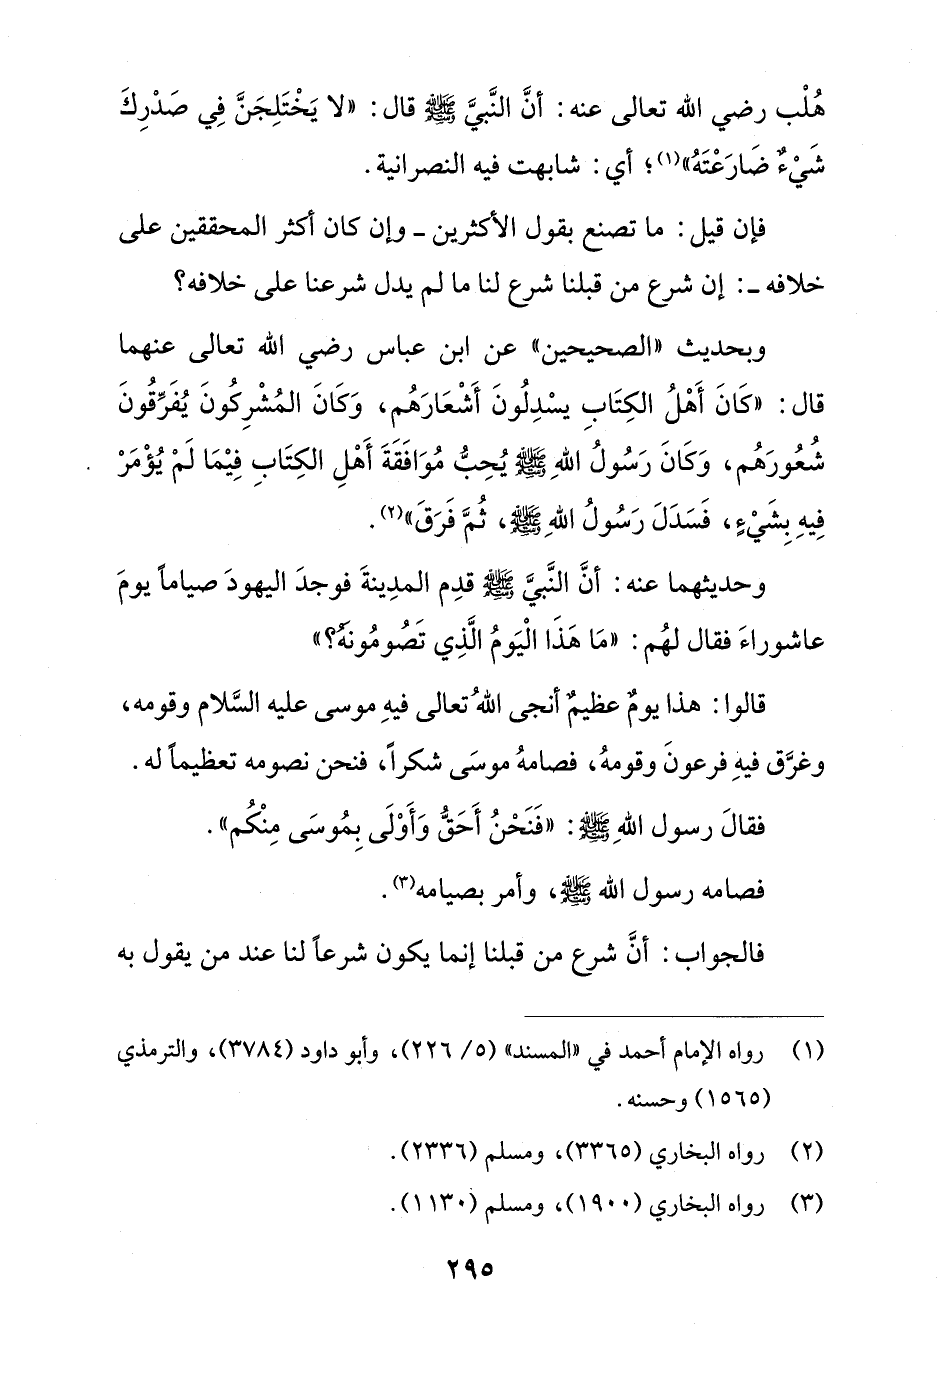 هُلْب رضي الله تعالى عنه: أنَّ النَّبيَّ ﷺ قال: «لا يَخْتَلِجَنَّ فِي صَدْرِكَ
شَيْءٌ ضَارَعْتَهُ»(١)؛ أي: شابهت فيه النصرانية.
فإن قيل: ما تصنع بقول الأكثرين ـ وإن كان أكثر المحققين على
خلافه ـ: إن شرع من قبلنا شرع لنا ما لم يدل شرعنا على خلافه؟
وبحديث «الصحيحين» عن ابن عباس رضي الله تعالى عنهما
قال: «كَانَ أَهْلُ الكِتَابِ يسْدِلُونَ أَشْعَارَهُم، وَكَانَ المُشْرِكُونَ يُفَرِّقُونَ
شُعُورَهُم، وَكَانَ رَسُولُ اللهِ ﷺ يُحِبُّ مُوَافَقَةَ أَهْلِ الكِتَابِ فِيْمَا لَمْ يُؤْمَرْ
فِيهِ بِشَيْءٍ، فَسَدَلَ رَسُولُ اللهِ ﷺ، ثُمَّ فَرَقَ»(٢).
وحديثهما عنه: أنَّ النَّبيَّ ﷺ قدِم المدِينةَ فوجدَ اليهودَ صياماً يومَ
عاشوراءَ فقال لهُم: «مَا هَذَا الْيَومُ الَّذِي تَصُومُونَهُ؟»
قالوا: هذا يومٌ عظيمٌ أنجى اللهُ تعالى فيهِ موسى عليه السَّلام وقومه،
وغرَّق فيهِ فرعونَ وقومهُ، فصامهُ موسَى شكراً، فنحن نصومه تعظيماً له.
فقالَ رسول اللهِ ﷺ: «فَنَحْنُ أَحَقُّ وَأَوْلَى بِمُوسَى مِنْكُم».
فصامه رسول الله ﷺ، وأمر بصيامه(٣).
فالجواب: أنَّ شرع من قبلنا إنما يكون شرعاً لنا عند من يقول به
(١) رواه الإمام أحمد في «المسند» (٥/ ٢٢٦)، وأبو داود (٣٧٨٤)، والترمذي
(١٥٦٥) وحسنه.
(٢) رواه البخاري (٣٣٦٥)، ومسلم (٢٣٣٦).
(٣) رواه البخاري (١٩٠٠)، ومسلم (١١٣٠).
٢٩٥